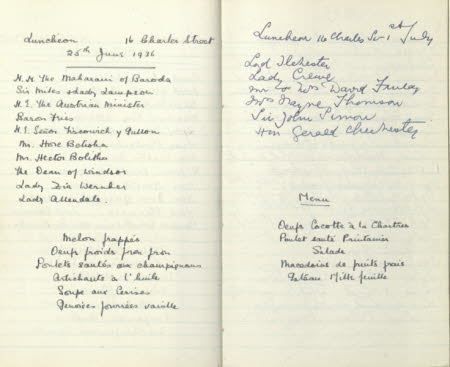 Luncheon 16 Charles Street
25th June 1936
H.H The Maharani of Baroda
Sir Miles & Lady Lampson
H.E. The Austrian Minister
Baron Fries
H.E Señor Viscourich y
Mr. Hore Belisha
Mr. Hector Bolitho
The Dean of Windsor
Lady Zia Wernher
Lady Allendale.
Melon frappés
Oeufs froids frou frou
Poulets sautés aux champignons
Artichauts à l'huile
Soupe aux Cerises
Genoises fourrées vanille
Luncheon 16 Charles St - 1st July
Lord Ilchester
Lady Crewe
Mr & Mrs David Finlay
Mrs Mayne Thomson
Sir John Simon
Hon Gerald Chichester
Menu
Oeufs Cocotte à la Chartres
Poulet sauté Printanier
Salade
Macedoine de fruits frais
Gateau Mille feuille